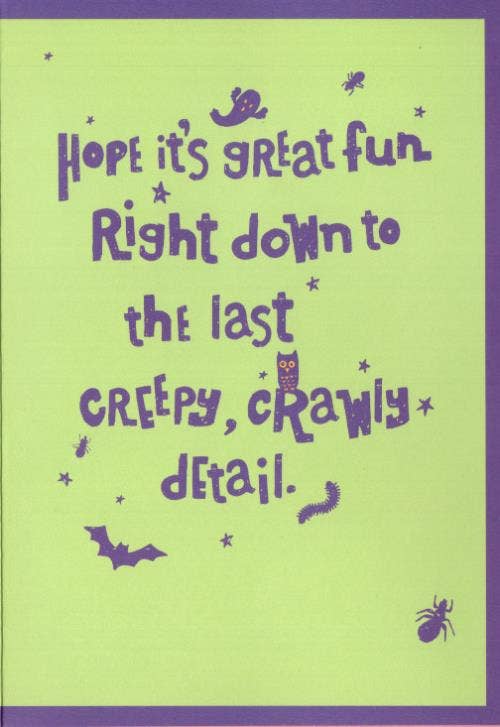 Hope it's great fun
Right down to
the last
creepy, crawly
detail.